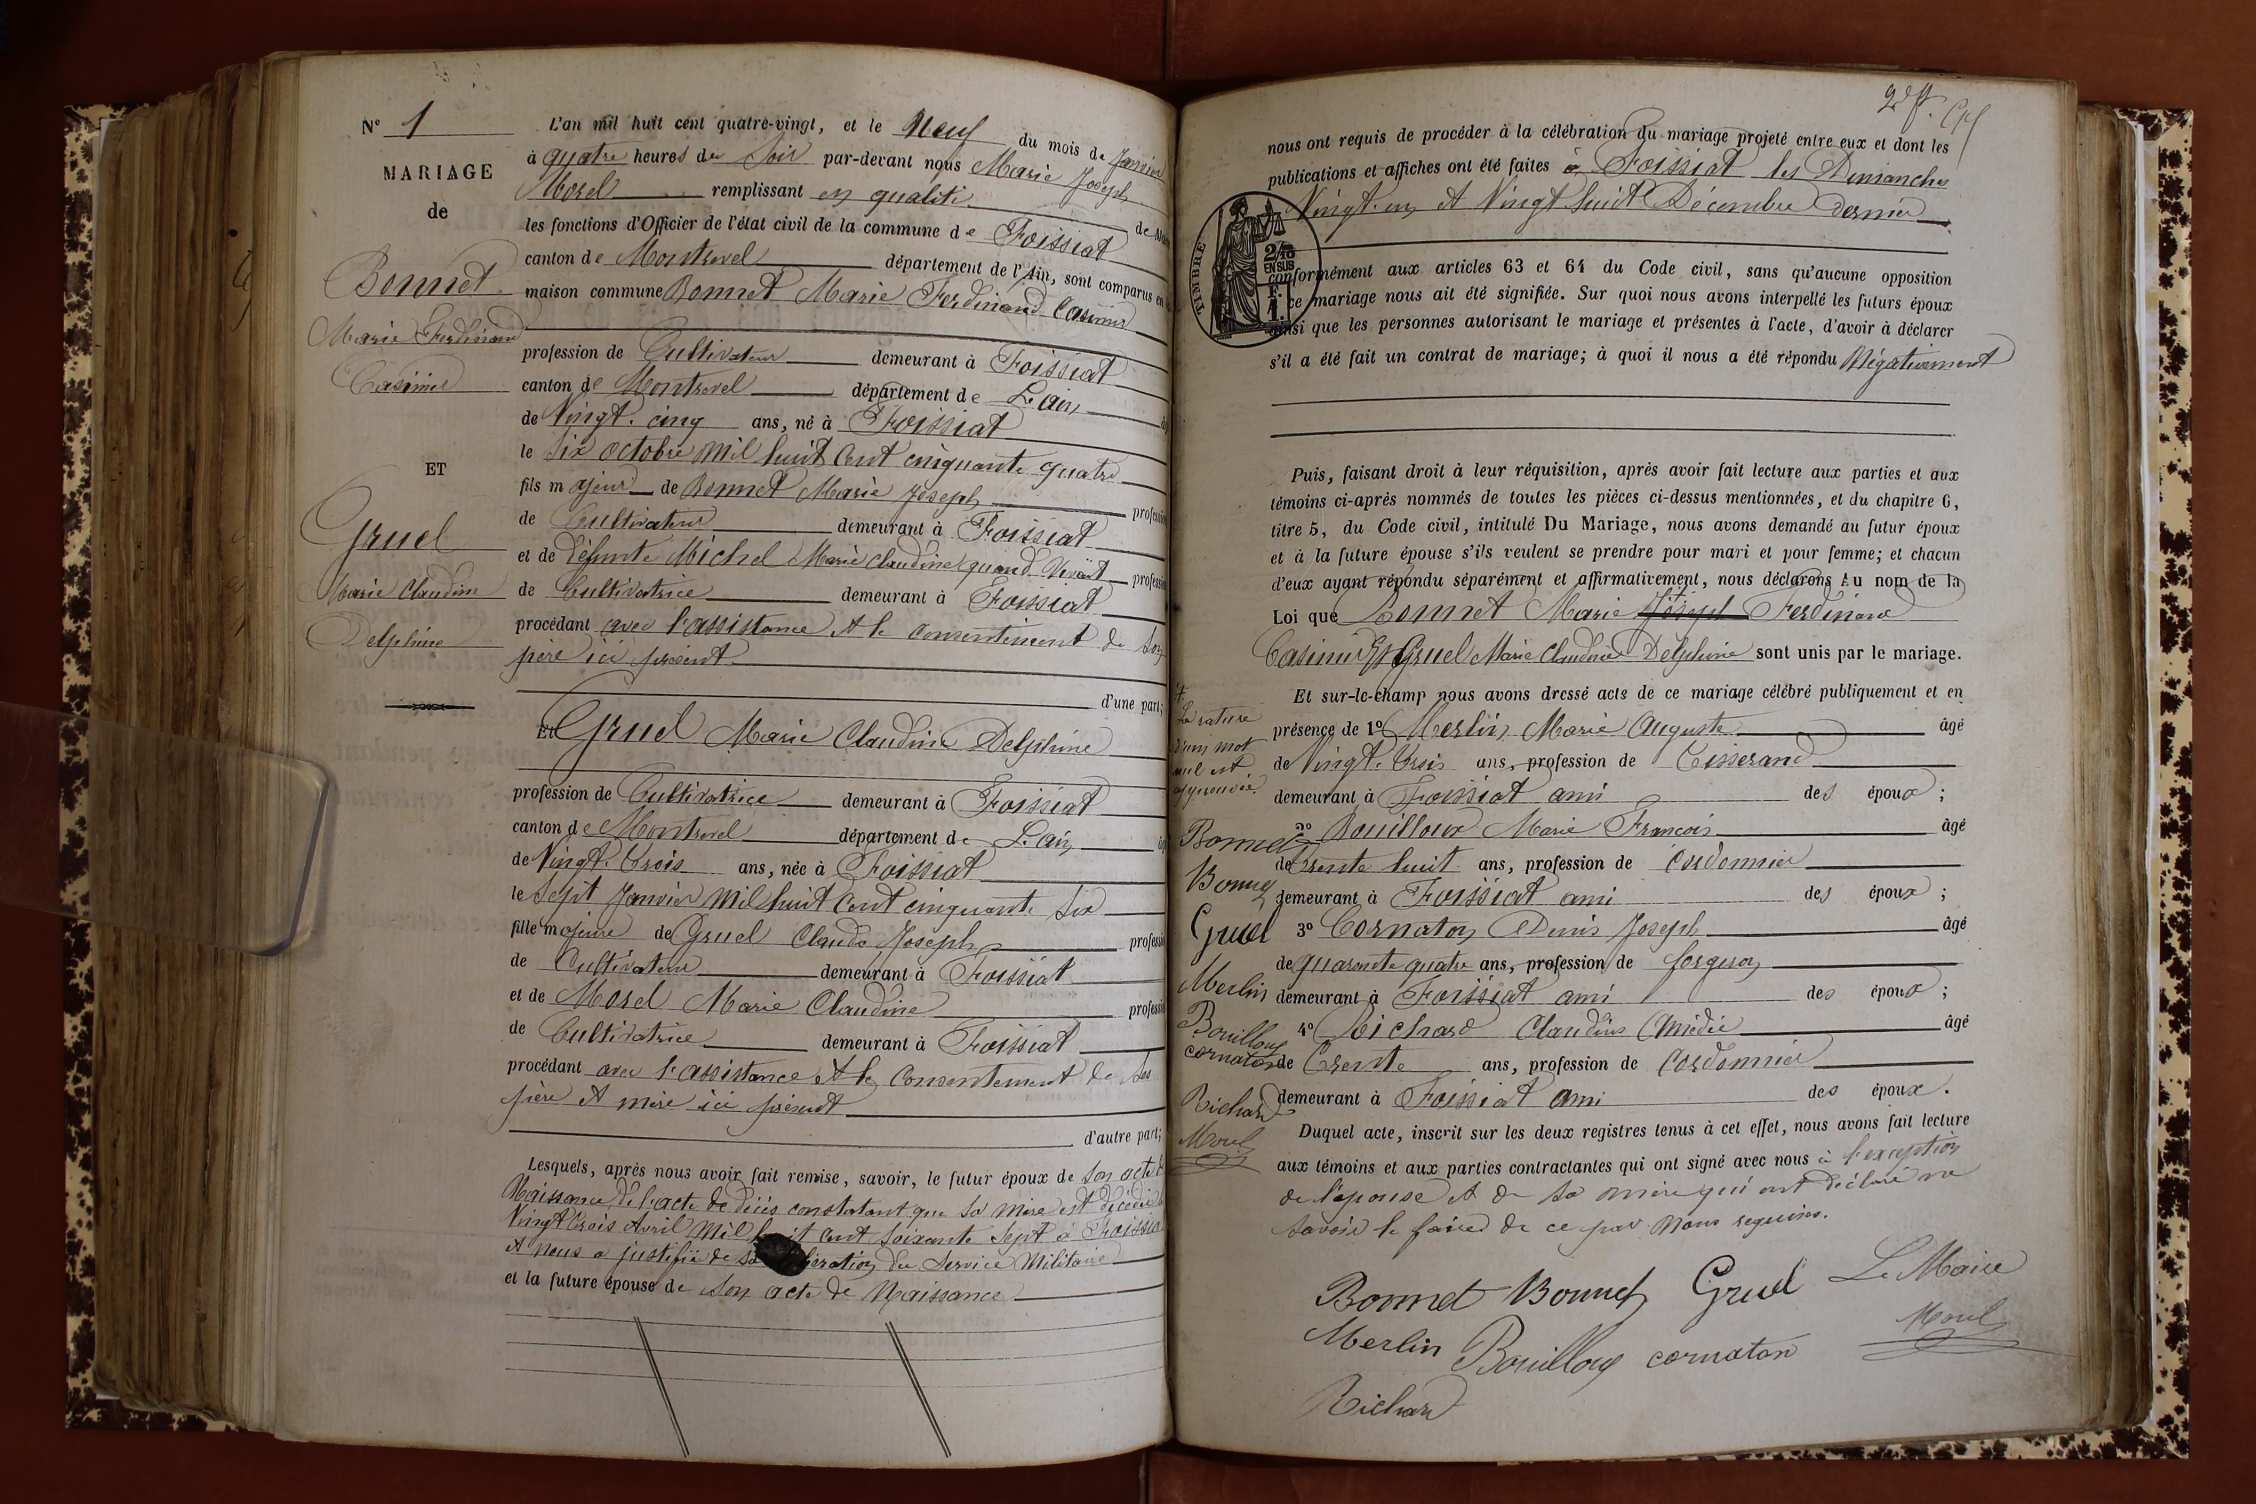 N° 1
MARIAGE
de
Bonnet
Marie Ferdinand
Casimir
ET
Gruel
Marie Claudine
Delphine
L'an mil huit cent quatre-vingt, et le Neuf du mois de Janvier
à quatre heures du Soir par-devant nous Marie Joseph
Morel remplissant en qualité de
les fonctions d'Officier de l'état civil de la commune de Foissiat
canton de Montrevel département de l'Ain, sont comparus en
maison commune Bonnet Marie Ferdinand Casimir
profession de Cultivateur demeurant à Foissiat
canton de Montrevel département de L'ain
de Vingt-cinq ans, né à Foissiat
le Six octobre Mil huit Cent cinquante quatre
fils majeur de Bonnet Marie Joseph profession
de Cultivateur demeurant à Foissiat
et de défunte Michel Marie Claudine quand Vivait profession
de Cultivatrice demeurant à Foissiat
procédant avec l'assistance Et le Consentement de Son
père ici présent
d'une part;
Et Gruel Marie Claudine Delphine
profession de Cultivatrice demeurant à Foissiat
canton de Montrevel département de L'ain
de Vingt-trois ans, née à Foissiat
le Sept Janvier Mil huit Cent cinquante Six
fille majeure de Gruel Claude Joseph profession
de Cultivateur demeurant à Foissiat
et de Morel Marie Claudine profession
de Cultivatrice demeurant à Foissiat
procédant avec l'assistance Et le Consentement de Ses
père Et mère ici présent
d'autre part;
Lesquels, après nous avoir fait remise, savoir, le futur époux de Son acte de
Naissance, de l'acte de décès constatant que Sa Mère est décédée le
Vingt trois Avril Mil huit cent Soixante Sept à Foissiat
Et Nous a justifié de Sa libération du Service Militaire
et la future épouse de Son acte de Naissance
2e ft.
nous ont requis de procéder à la célébration du mariage projeté entre eux et dont les
publications et affiches ont été faites à Foissiat les Dimanches
Vingt-un Et Vingt huit Décembre dernier
TIMBRE
2/10
EN SUS
F.
1.
conformément aux articles 63 et 64 du Code civil, sans qu'aucune opposition
à ce mariage nous ait été signifiée. Sur quoi nous avons interpellé les futurs époux
ainsi que les personnes autorisant le mariage et présentes à l'acte, d'avoir à déclarer
s'il a été fait un contrat de mariage; à quoi il nous a été répondu Négativement
Puis, faisant droit à leur réquisition, après avoir fait lecture aux parties et aux
témoins ci-après nommés de toutes les pièces ci-dessus mentionnées, et du chapitre 6,
titre 5, du Code civil, intitulé Du Mariage, nous avons demandé au futur époux
et à la future épouse s'ils veulent se prendre pour mari et pour femme; et chacun
d'eux ayant répondu séparément et affirmativement, nous déclarons Au nom de la
Loi que Bonnet Marie Joseph Ferdinand
Casimir Et Gruel Marie Claudine Delphine sont unis par le mariage.
Et sur-le-champ nous avons dressé acte de ce mariage célébré publiquement et en
présence de 1° Merlin Marie Auguste âgé
de Vingt-trois ans, profession de Tisserand
demeurant à Foissiat ami des époux;
2° Bouilloux Marie François âgé
de Trente huit ans, profession de Cordonnier
demeurant à Foissiat ami des époux;
3° Cornaton Denis Joseph âgé
de quarante quatre ans, profession de forgeron
demeurant à Foissiat ami des époux;
4° Richard Claudius Amédée âgé
de Trente ans, profession de Cordonnier
demeurant à Foissiat ami des époux.
Duquel acte, inscrit sur les deux registres tenus à cet effet, nous avons fait lecture
aux témoins et aux parties contractantes qui ont signé avec nous à l'exception
de l'épouse et de sa mère qui ont déclaré ne
savoir le faire de ce par Nous requises.
La rature
d'un mot
nul est
approuvée.
Bonnet
Bonnet
Gruel
Merlin
Bouilloux
cornaton
Richard
Morel
Bonnet Bonnet Gruel Le Maire
Merlin Bouilloux cornaton Morel
Richard